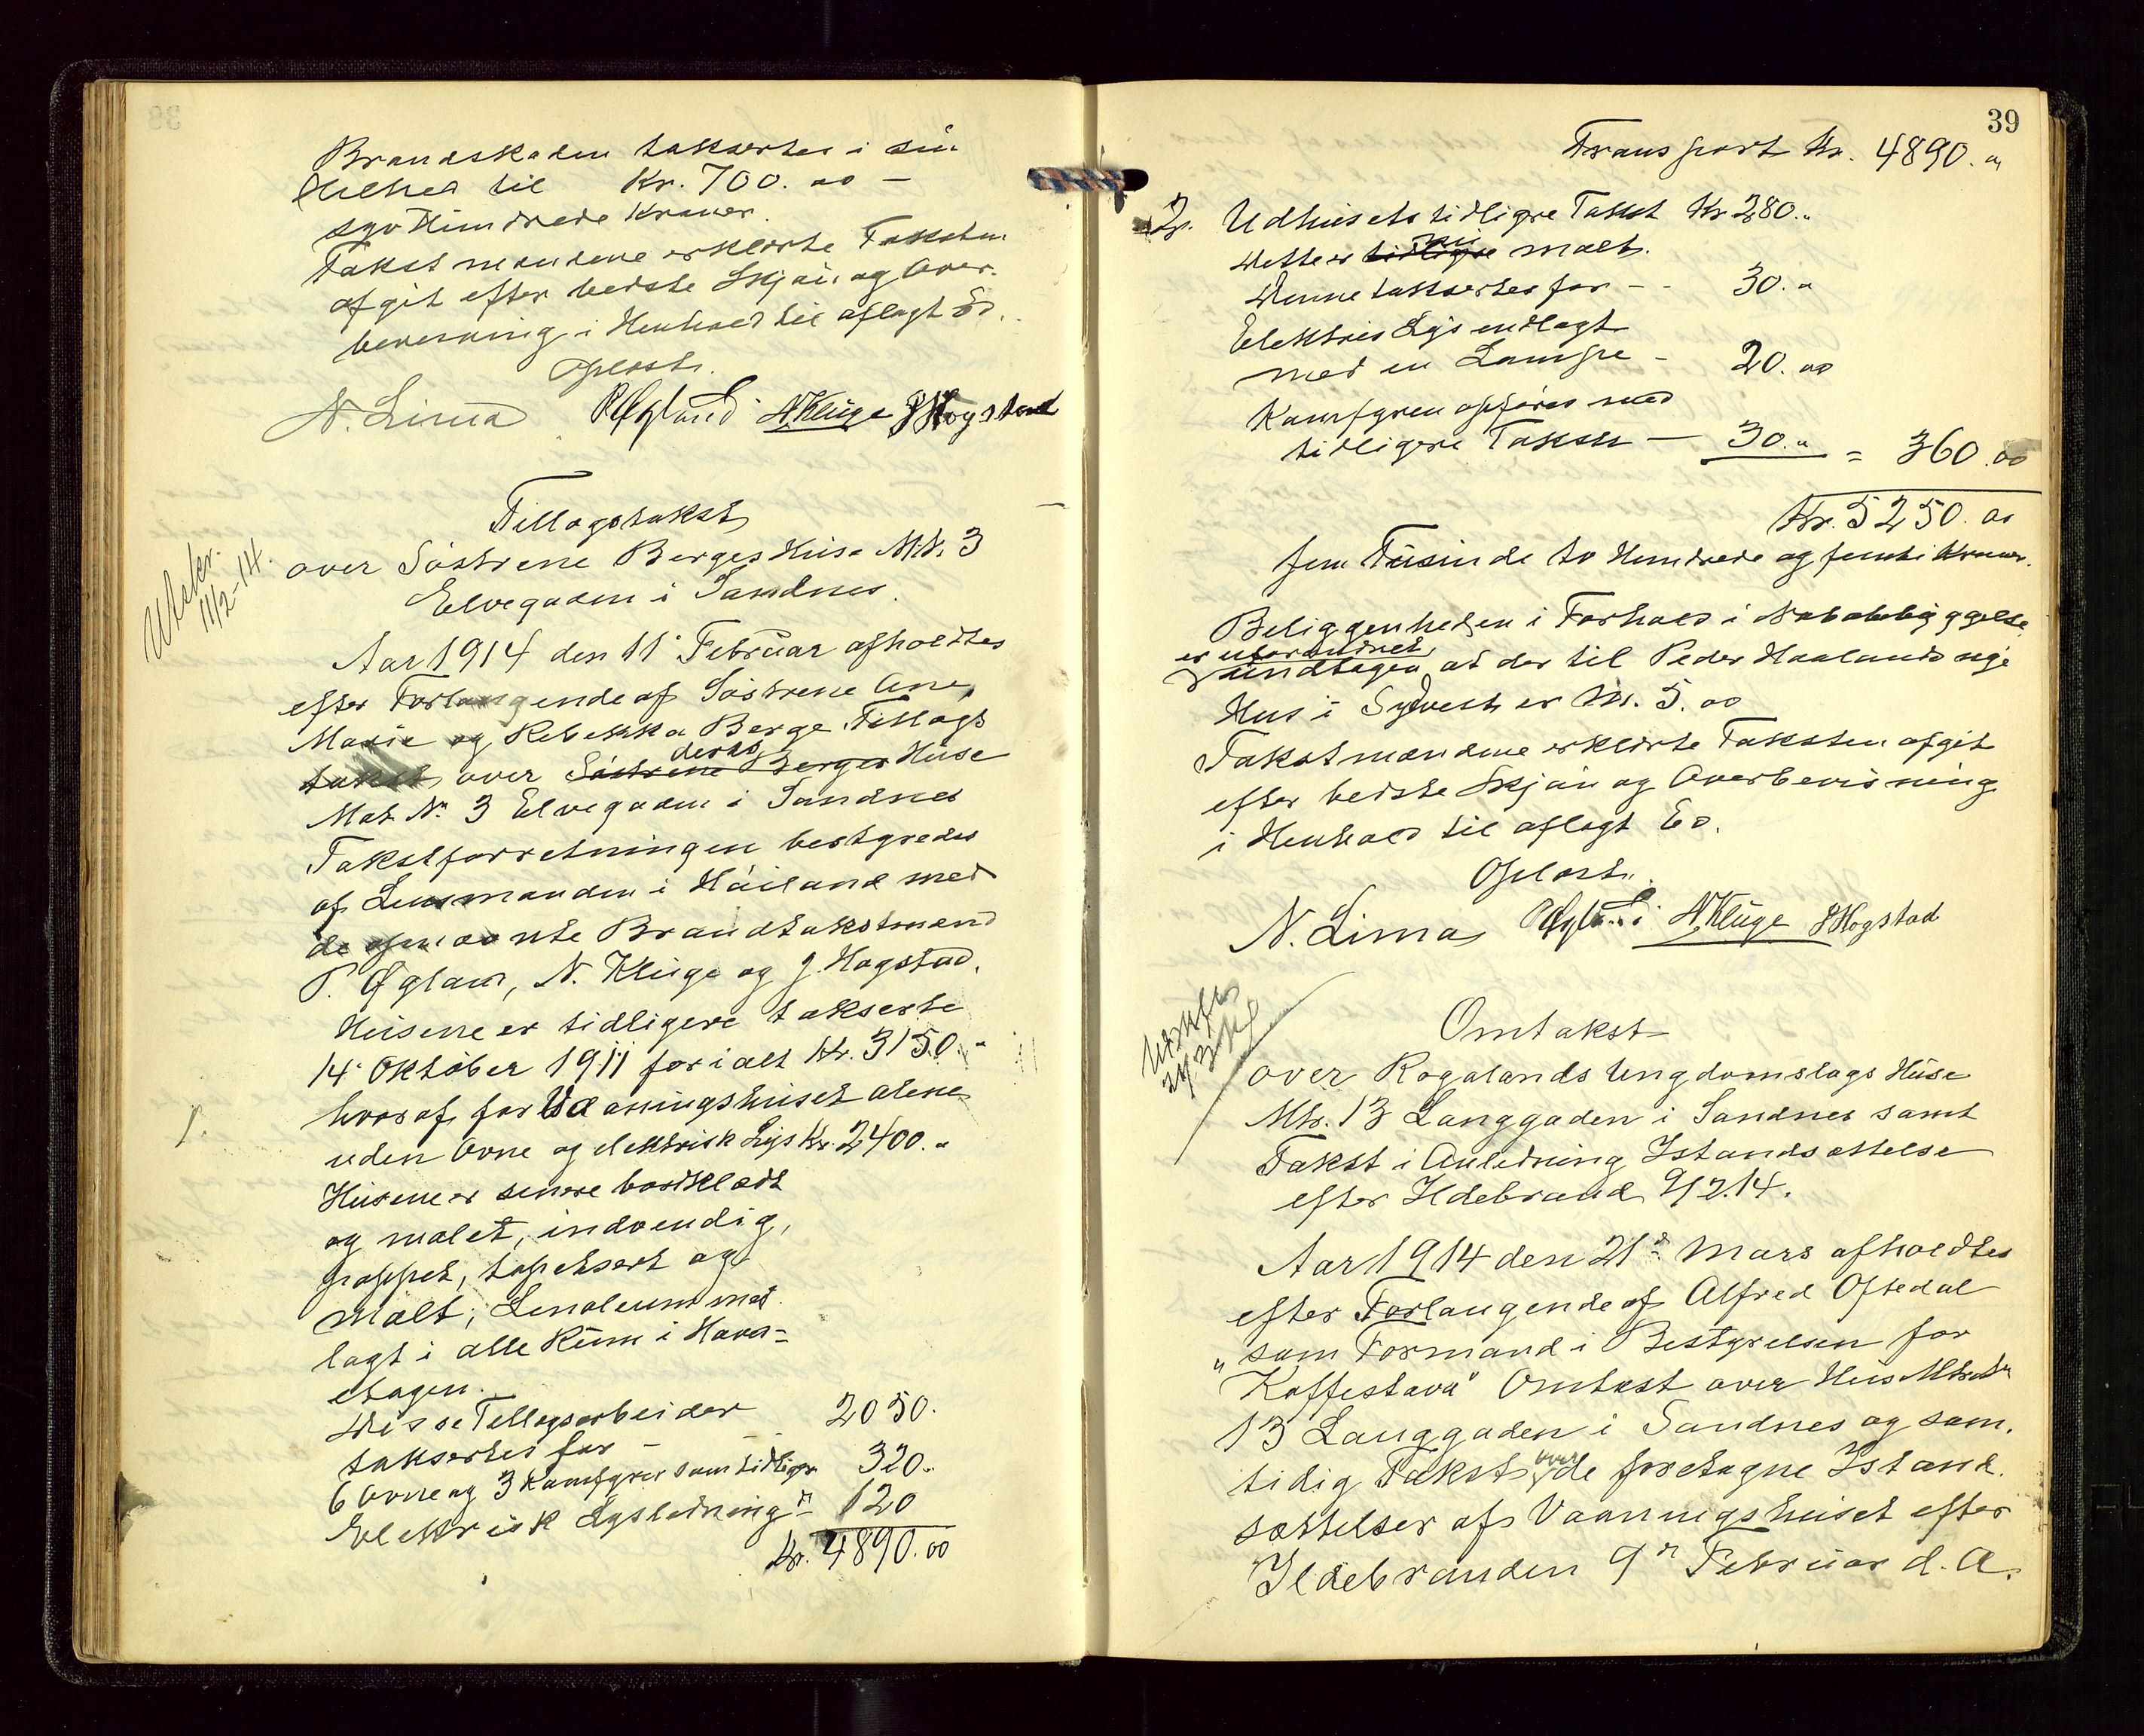 Brandskaden taksertes i sin
Helhed til Kr. 700.00 –
syv Hundrede Kroner.
Takstmændene erklærte Taksten
afgit efter bedste Skjøn og Over-
bevisning i Henhold til aflagt Ed.
Oplæst.
N. Lima P Øgland N Kluge J Hogstad
Utskr.
11/2-14.
Tillægstakst
over Søstrene Berges Huse M.N. 3
Elvegaden i Sandnes.
Aar 1914 den 11' Februar afholdtes
efter Forlangende af Søstrene Ane,
Marie og Rebekka Berge Tillægs
deres
takst over Søstrene Berges Huse
Mat. Nr. 3 Elvegaden i Sandnes
Takstforretningen bestyredes
af Lensmanden i Høiland med
de opnævnte Brandtakstmænd
P. Øgland, N. Kluge og J. Hogstad.
Husene er tidligere takserte
14' Oktober 1911 for ialt Kr. 3150.
1. hvoraf for Vaaningshuset alene
uden Ovne og elektrisk Lys Kr. 2400.
Husene er senere bordklædt
og malet, indvendig,
pappet, tapetsert og
malt; Linoleum
lagt i alle Rum i Hoved-
etagen.
Disse Tillægsarbeider
taksertes for – 2050.
6 Ovne og 3 Komfyrer som tidligere 320.
Elektrisk Lysledning 120
Kr. 4890.00
39
Transport Kr. 4890.
2. Udhusets tidligere Takst Kr 280.
ny
Dette er tidligere malt.
Denne taksertes for – – 30.
Elektris Lys indlagt
med en Lampe – 20.00
Komfyren opføres med
tidligere Takst – 30. = 360.00
Kr. 5250.00
fem Tusinde to Hundrede og femti Kroner.
Beliggenheden i Forhold i Nabobebyggelse
er uforandret
undtagen at der til Peder Haalands nye
Hus i Sydvest er M. 5.00
Takstmændene erklærte Taksten afgit
efter bedste Skjøn og Overbevisning
i Henhold til aflagt Ed.
Oplæst.
N. Lima P Øgland N Kluge J Hogstad
Omtakst
over Rogalands Ungdomslags Huse
Mtr. 13 Langgaden i Sandnes samt
Takst i Anledning Istandsættelse
efter Ildebrand 9/2.14.
Aar 1914 den 21de Mars afholdtes
efter Forlangende af Alfred Oftedal
som Formand i Bestyrelsen for
"Kaffestova" Omtakst over Hus Mtr. Nr
13 Langgaden i Sandnes og sam-
over
tidig Takst de foretagne Istand-
sættelser af Vaaningshuset efter
Ildebranden 9de Februar d. A.